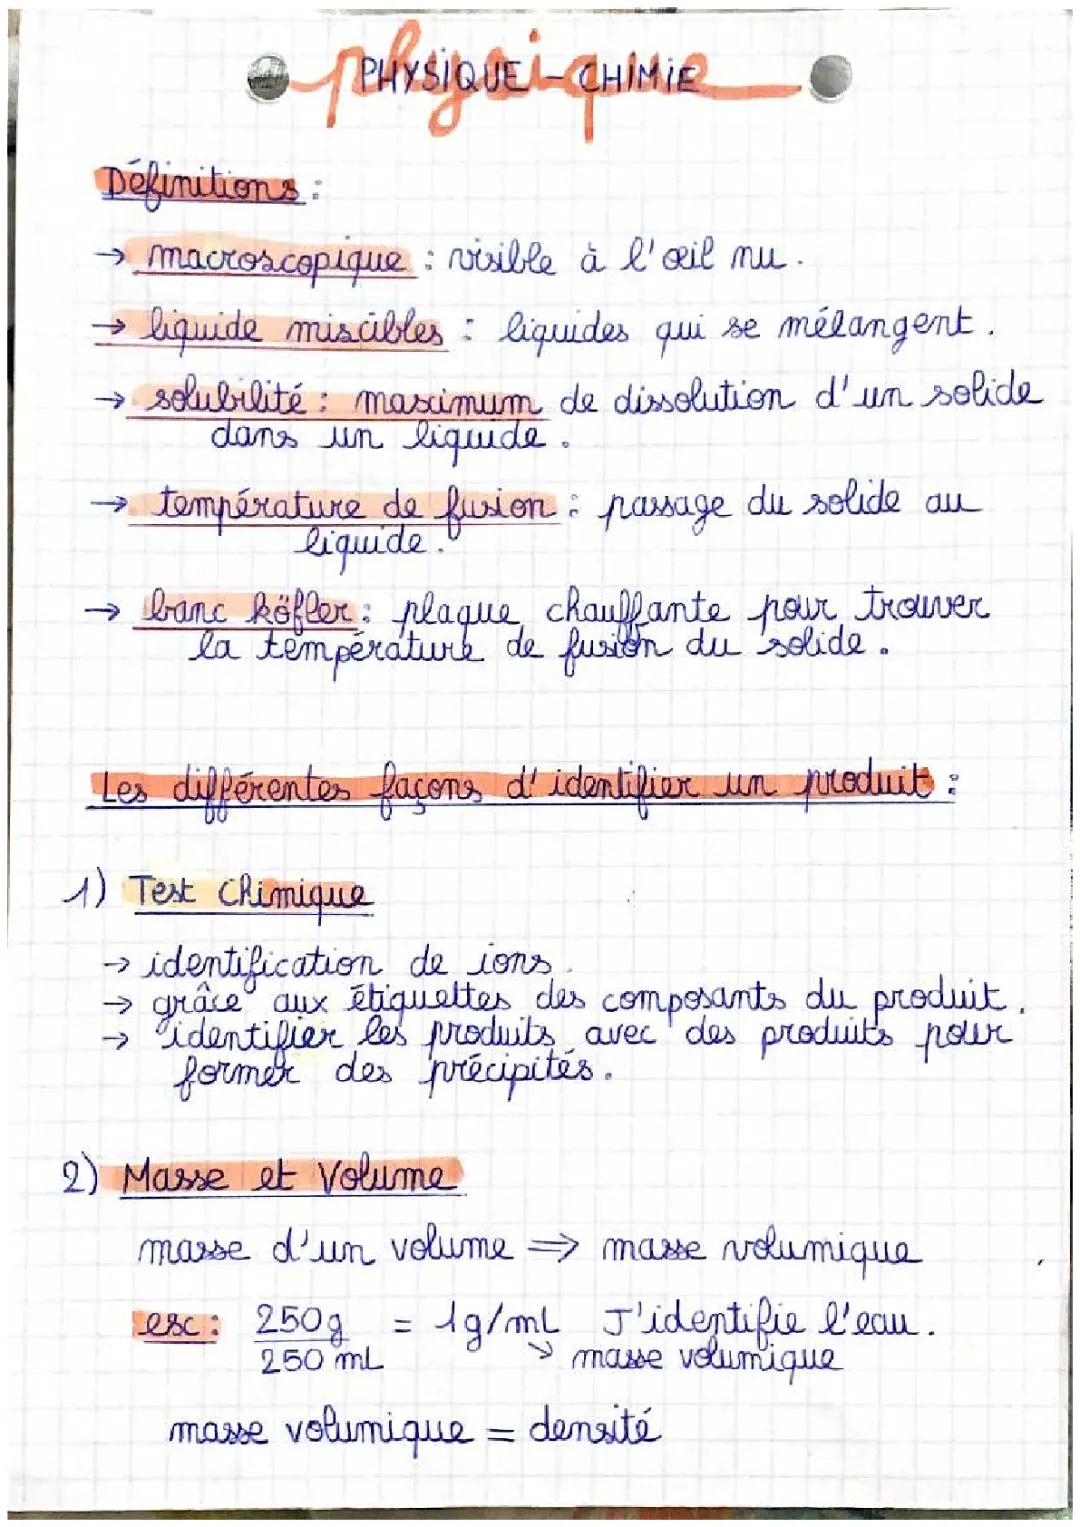 physique
PHYSIQUE - CHIMIE
Définitions :
→ macroscopique : visible à l'œil nu.
→ liquide miscibles : liquides qui se mélangent.
→ solubilité : maximum de dissolution d'un solide
dans un liquide.
→ température de fusion : passage du solide au
liquide.
→ banc köfler : plaque chauffante pour trouver
la température de fusion du solide.
Les différentes façons d'identifier un produit :
1) Test Chimique
→ identification de ions.
→ grâce aux étiquettes des composants du produit.
→ identifier les produits avec des produits pour
former des précipités.
2) Masse et Volume
masse d'un volume ⇒ masse volumique
ex : 250g = 1g/mL J'identifie l'eau.
250 mL → masse volumique
masse volumique = densité